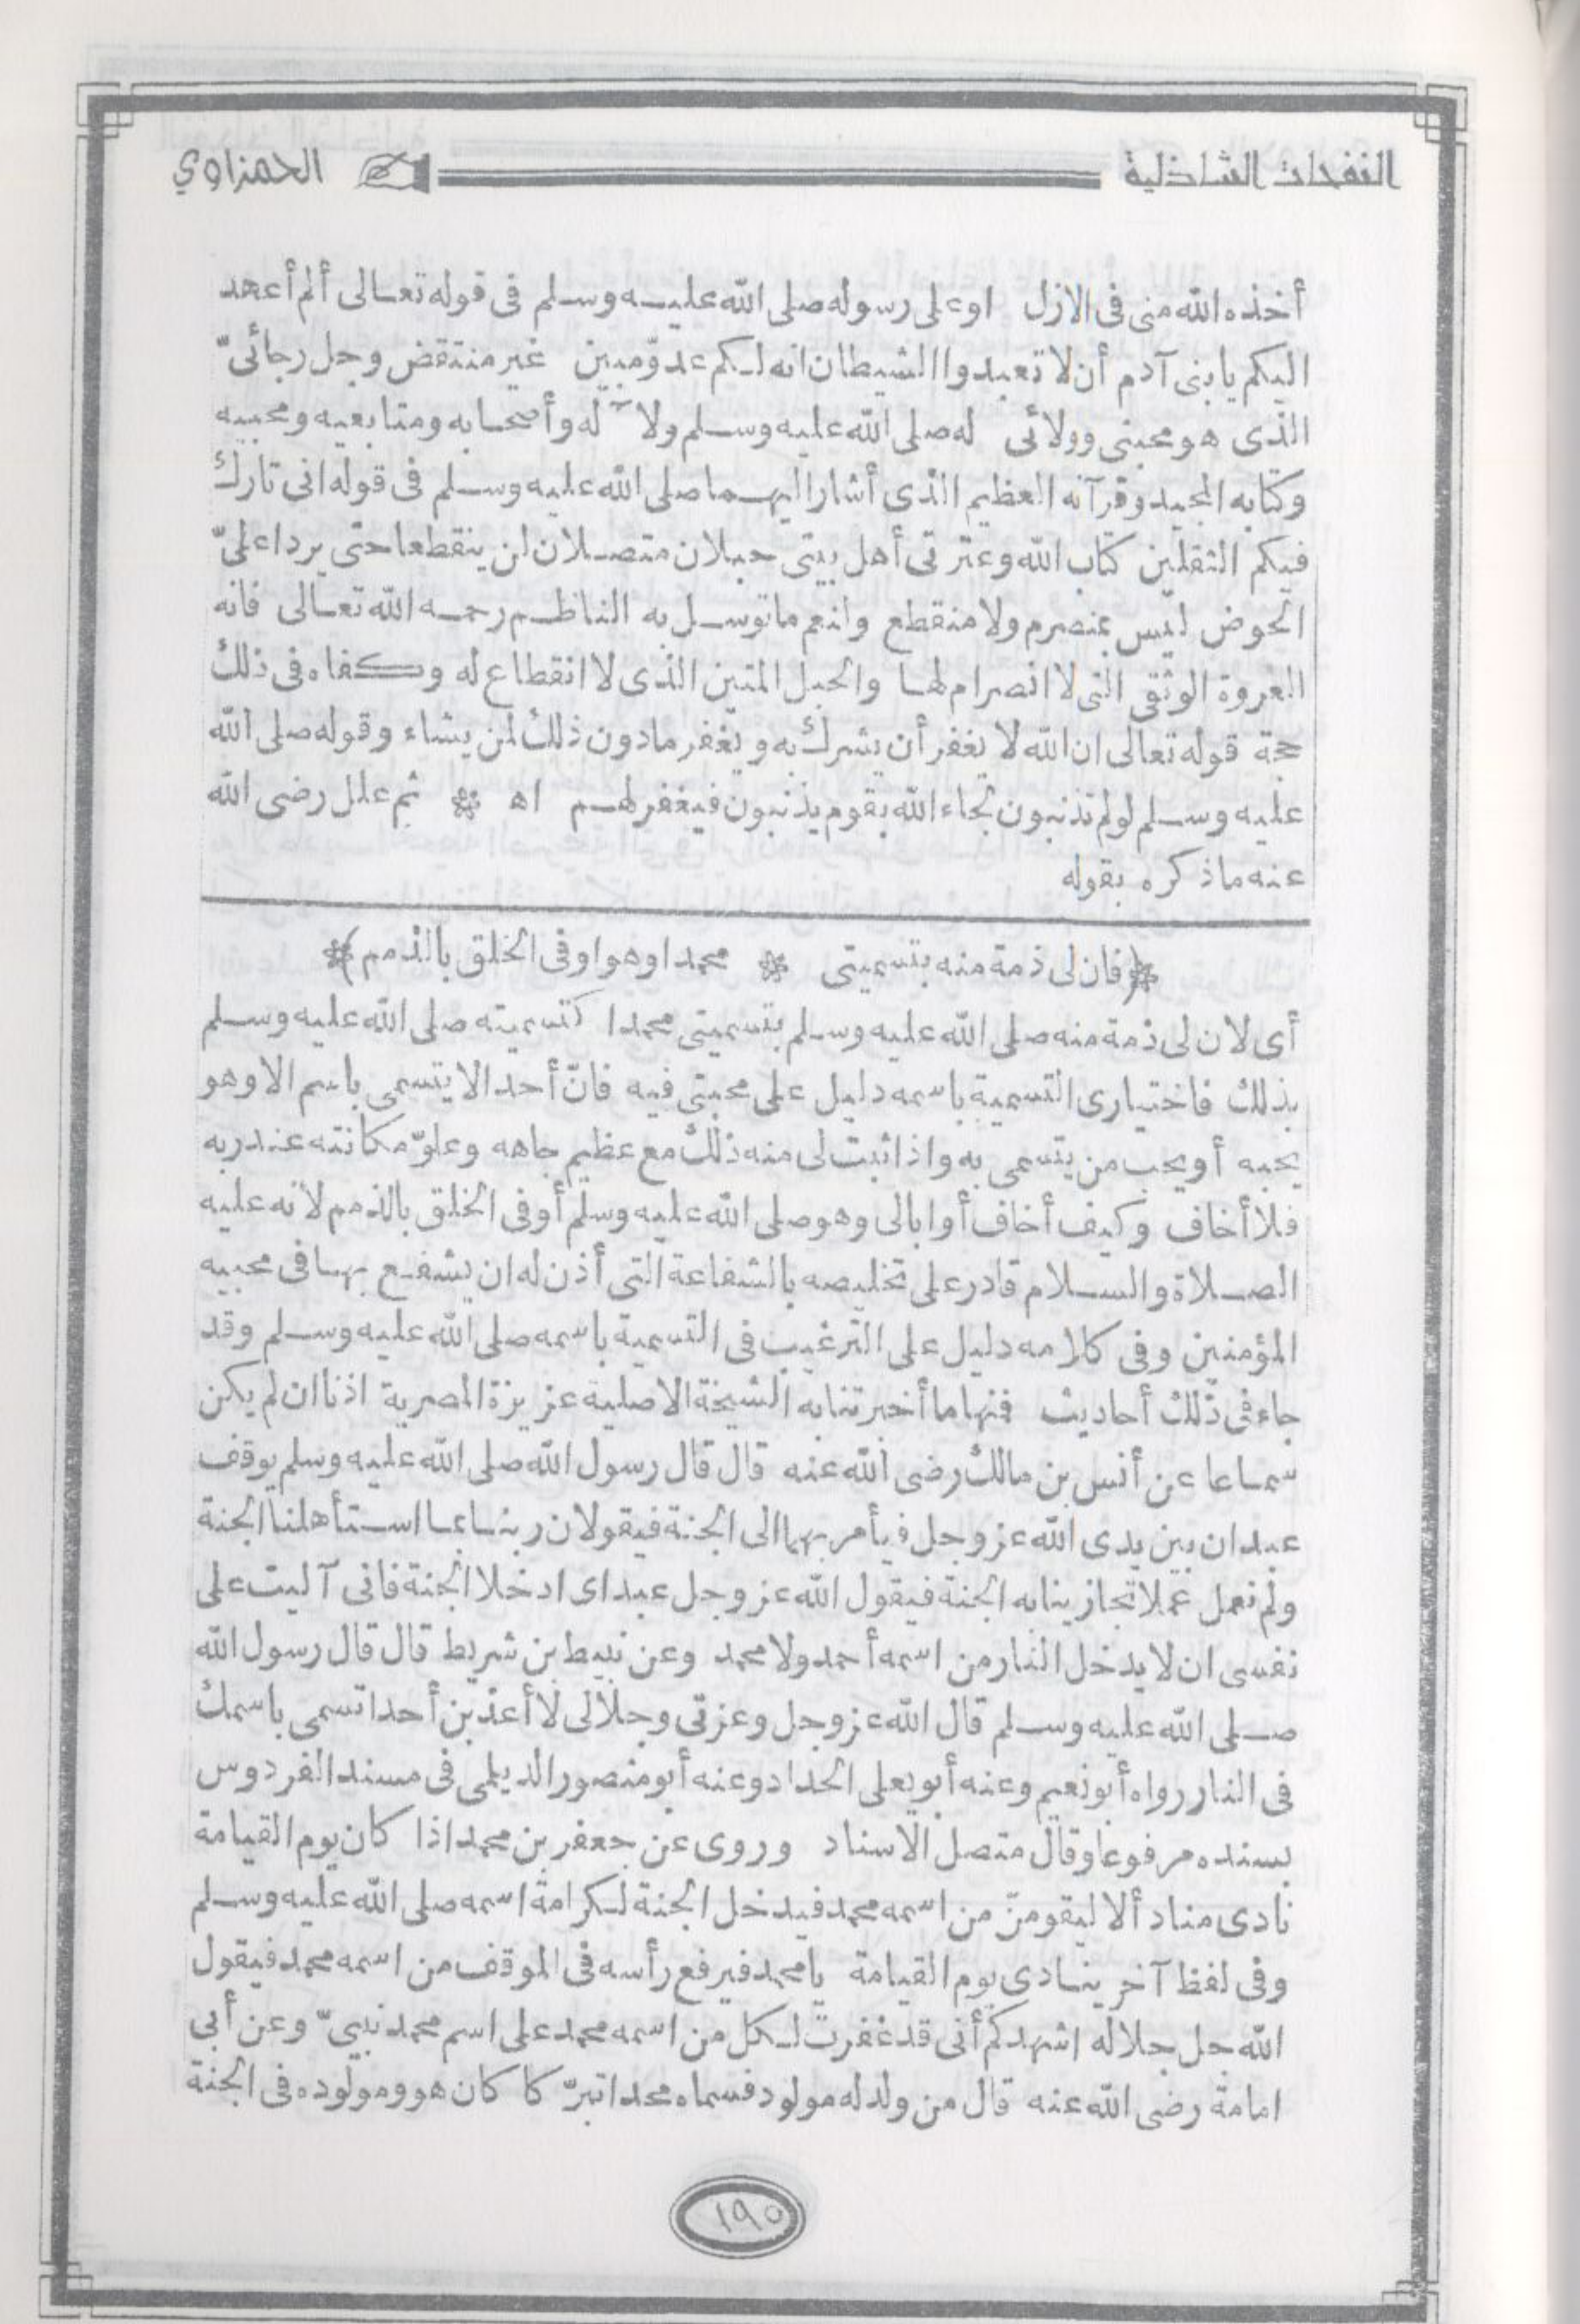 النفحات الشاذلية
الحمزاوي
أخذه الله منى فى الازل اوعلى رسوله صلى الله عليه وسلم فى قوله تعالى ألم أعهد
اليكم يا بنى آدم أن لا تعبدوا الشيطان انه لكم عدوّ مبين غير منتقض وحبل رجائىّ
الذى هو محبتى وولائى له صلى الله عليه وسلم ولآله وأصحابه ومتابعيه ومحبيه
وكتابه المجيد وقرآنه العظيم الذى أشار اليهما صلى الله عليه وسلم فى قوله انى تارك
فيكم الثقلين كتاب الله وعترتى أهل بيتى حبلان متصلان لن ينقطعا حتى يردا علىّ
الحوض ليس بمنصرم ولا منقطع وانعم ما توسل به الناظم رحمه الله تعالى فانه
العروة الوثقى التى لا انصرام لها والحبل المتين الذى لا انقطاع له وكفاه فى ذلك
حجة قوله تعالى ان الله لا يغفر أن يشرك به ويغفر مادون ذلك لمن يشاء وقوله صلى الله
عليه وسلم لولم تذنبون لجاء الله بقوم يذنبون فيغفر لهم اه * ثم علل رضى الله
عنه ماذكره بقوله
*(فان لى ذمة منه بتسميتى * محمدا وهو اوفى الخلق بالذمم)*
أى لان لى ذمة منه صلى الله عليه وسلم بتسميتى محمدا كتسميته صلى الله عليه وسلم
بذلك فاختيارى التسمية باسمه دليل على محبتى فيه فانّ أحد الا يتسمى باسم الا وهو
يحبه أو يحب من يتسمى به واذا ثبت لى منه ذلك مع عظيم جاهه وعلوّ مكانته عند ربه
فلا أخاف وكيف أخاف أو ابالى وهو صلى الله عليه وسلم أوفى الخلق بالذمم لانه عليه
الصلاة والسلام قادر على تخليصه بالشفاعة التى أذن له ان يشفع بها فى محبيه
المؤمنين وفى كلامه دليل على الترغيب فى التسمية باسمه صلى الله عليه وسلم وقد
جاء فى ذلك أحاديث فنها ما أخبرتنا به الشيخة الاصلية عزيزة المصرية اذنا ان لم يكن
سماعا عن أنس بن مالك رضى الله عنه قال قال رسول الله صلى الله عليه وسلم يوقف
عبدان بين يدى الله عز وجل فيأمر بهما الى الجنة فيقولان ربنا بما استأهلنا الجنة
ولم نعمل عملا تجازينا به الجنة فيقول الله عز وجل عبداى ادخلا الجنة فانى آليت على
نفسى ان لا يدخل النار من اسمه أحمد ولا محمد وعن نبيط بن شريط قال قال رسول الله
صلى الله عليه وسلم قال الله عز وجل وعزتى وجلالى لا أعذبن أحدا تسمى باسمك
فى النار رواه أبو نعيم وعنه أبو يعلى الحداد وعنه أبو منصور الديلى فى مسند الفردوس
بسنده مرفوعا وقال متصل الاسناد وروى عن جعفر بن محمد اذا كان يوم القيامة
نادى مناد ألا ليقومنّ من اسمه محمد فيدخل الجنة لكرامة اسمه صلى الله عليه وسلم
وفى لفظ آخر ينادى يوم القيامة يا محمد فيرفع رأسه فى الموقف من اسمه محمد فيقول
الله جل جلاله اشهدكم أنى قد غفرت لكل من اسمه محمد على اسم محمد نبيىّ وعن أبى
امامة رضى الله عنه قال من ولد له مولود فسماه محمدا تبرّكا كان هو ومولوده فى الجنة
١٩٥